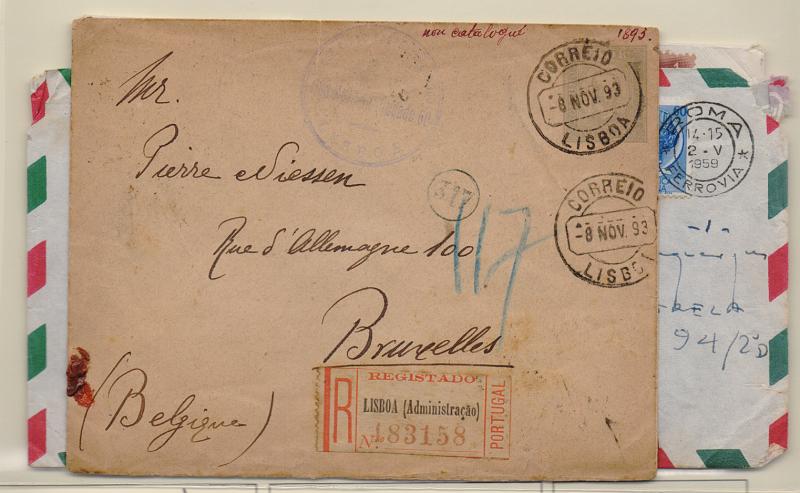 non catalogué 1893.
CORREIO
-8 NOV. 93
LISBOA
Mr.
Pierre Niessen
Rue d'Allemagne 100
Bruxelles
(Belgique)
317
117
CORREIO
-8 NOV. 93
LISBOA
REGISTADO
R
LISBOA (Administração)
No. 183158
PORTUGAL
ROMA
14-15
2-V
1959
FERROVIA
-1-
94/2ºD